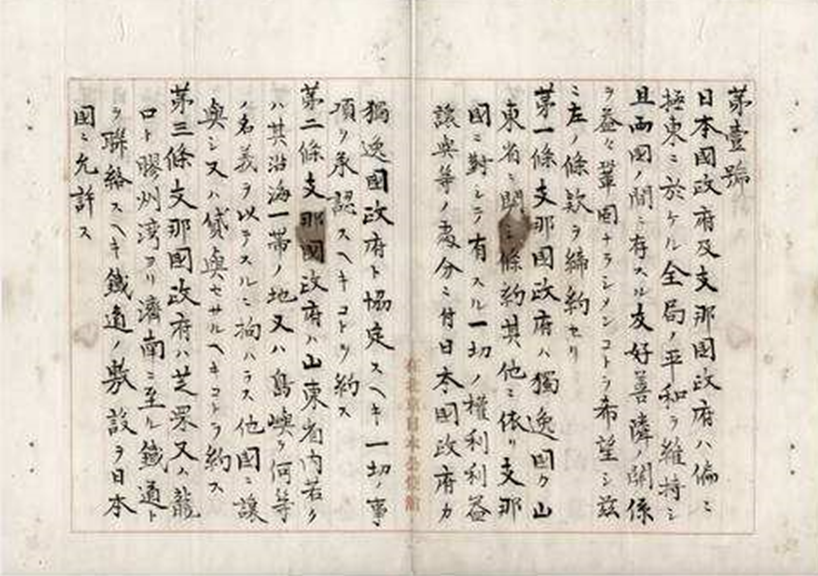 第壹號
日本國政府及支那國政府ハ偏ニ
極東ニ於ケル全局ノ平和ヲ維持シ
且両國ノ間ニ存スル友好善隣ノ関係
ヲ益々鞏固ナラシメンコトヲ希望シ茲
ニ左ノ條款ヲ締約セリ
第一條支那國政府ハ獨逸國カ山
東省ニ関シ條約其他ニ依リ支那
國ニ對シテ有スル一切ノ權利利益
讓與等ノ處分ニ付日本國政府カ
獨逸國政府ト協定スヘキ一切ノ事
項ヲ承認スヘキコトヲ約ス
第二條支那國政府ハ山東省内若ク
ハ其沿海一帶ノ地又ハ島嶼ヲ何等
ノ名義ヲ以テスルニ拘ハラス他國ニ讓
與シ又ハ貸與セサルヘキコトヲ約ス
第三條支那國政府ハ芝罘又ハ龍
口ト膠州湾ヨリ濟南ニ至ル鐵道ト
ヲ聯絡スヘキ鐵道ノ敷設ヲ日本
國ニ允許ス
在北京日本公使館